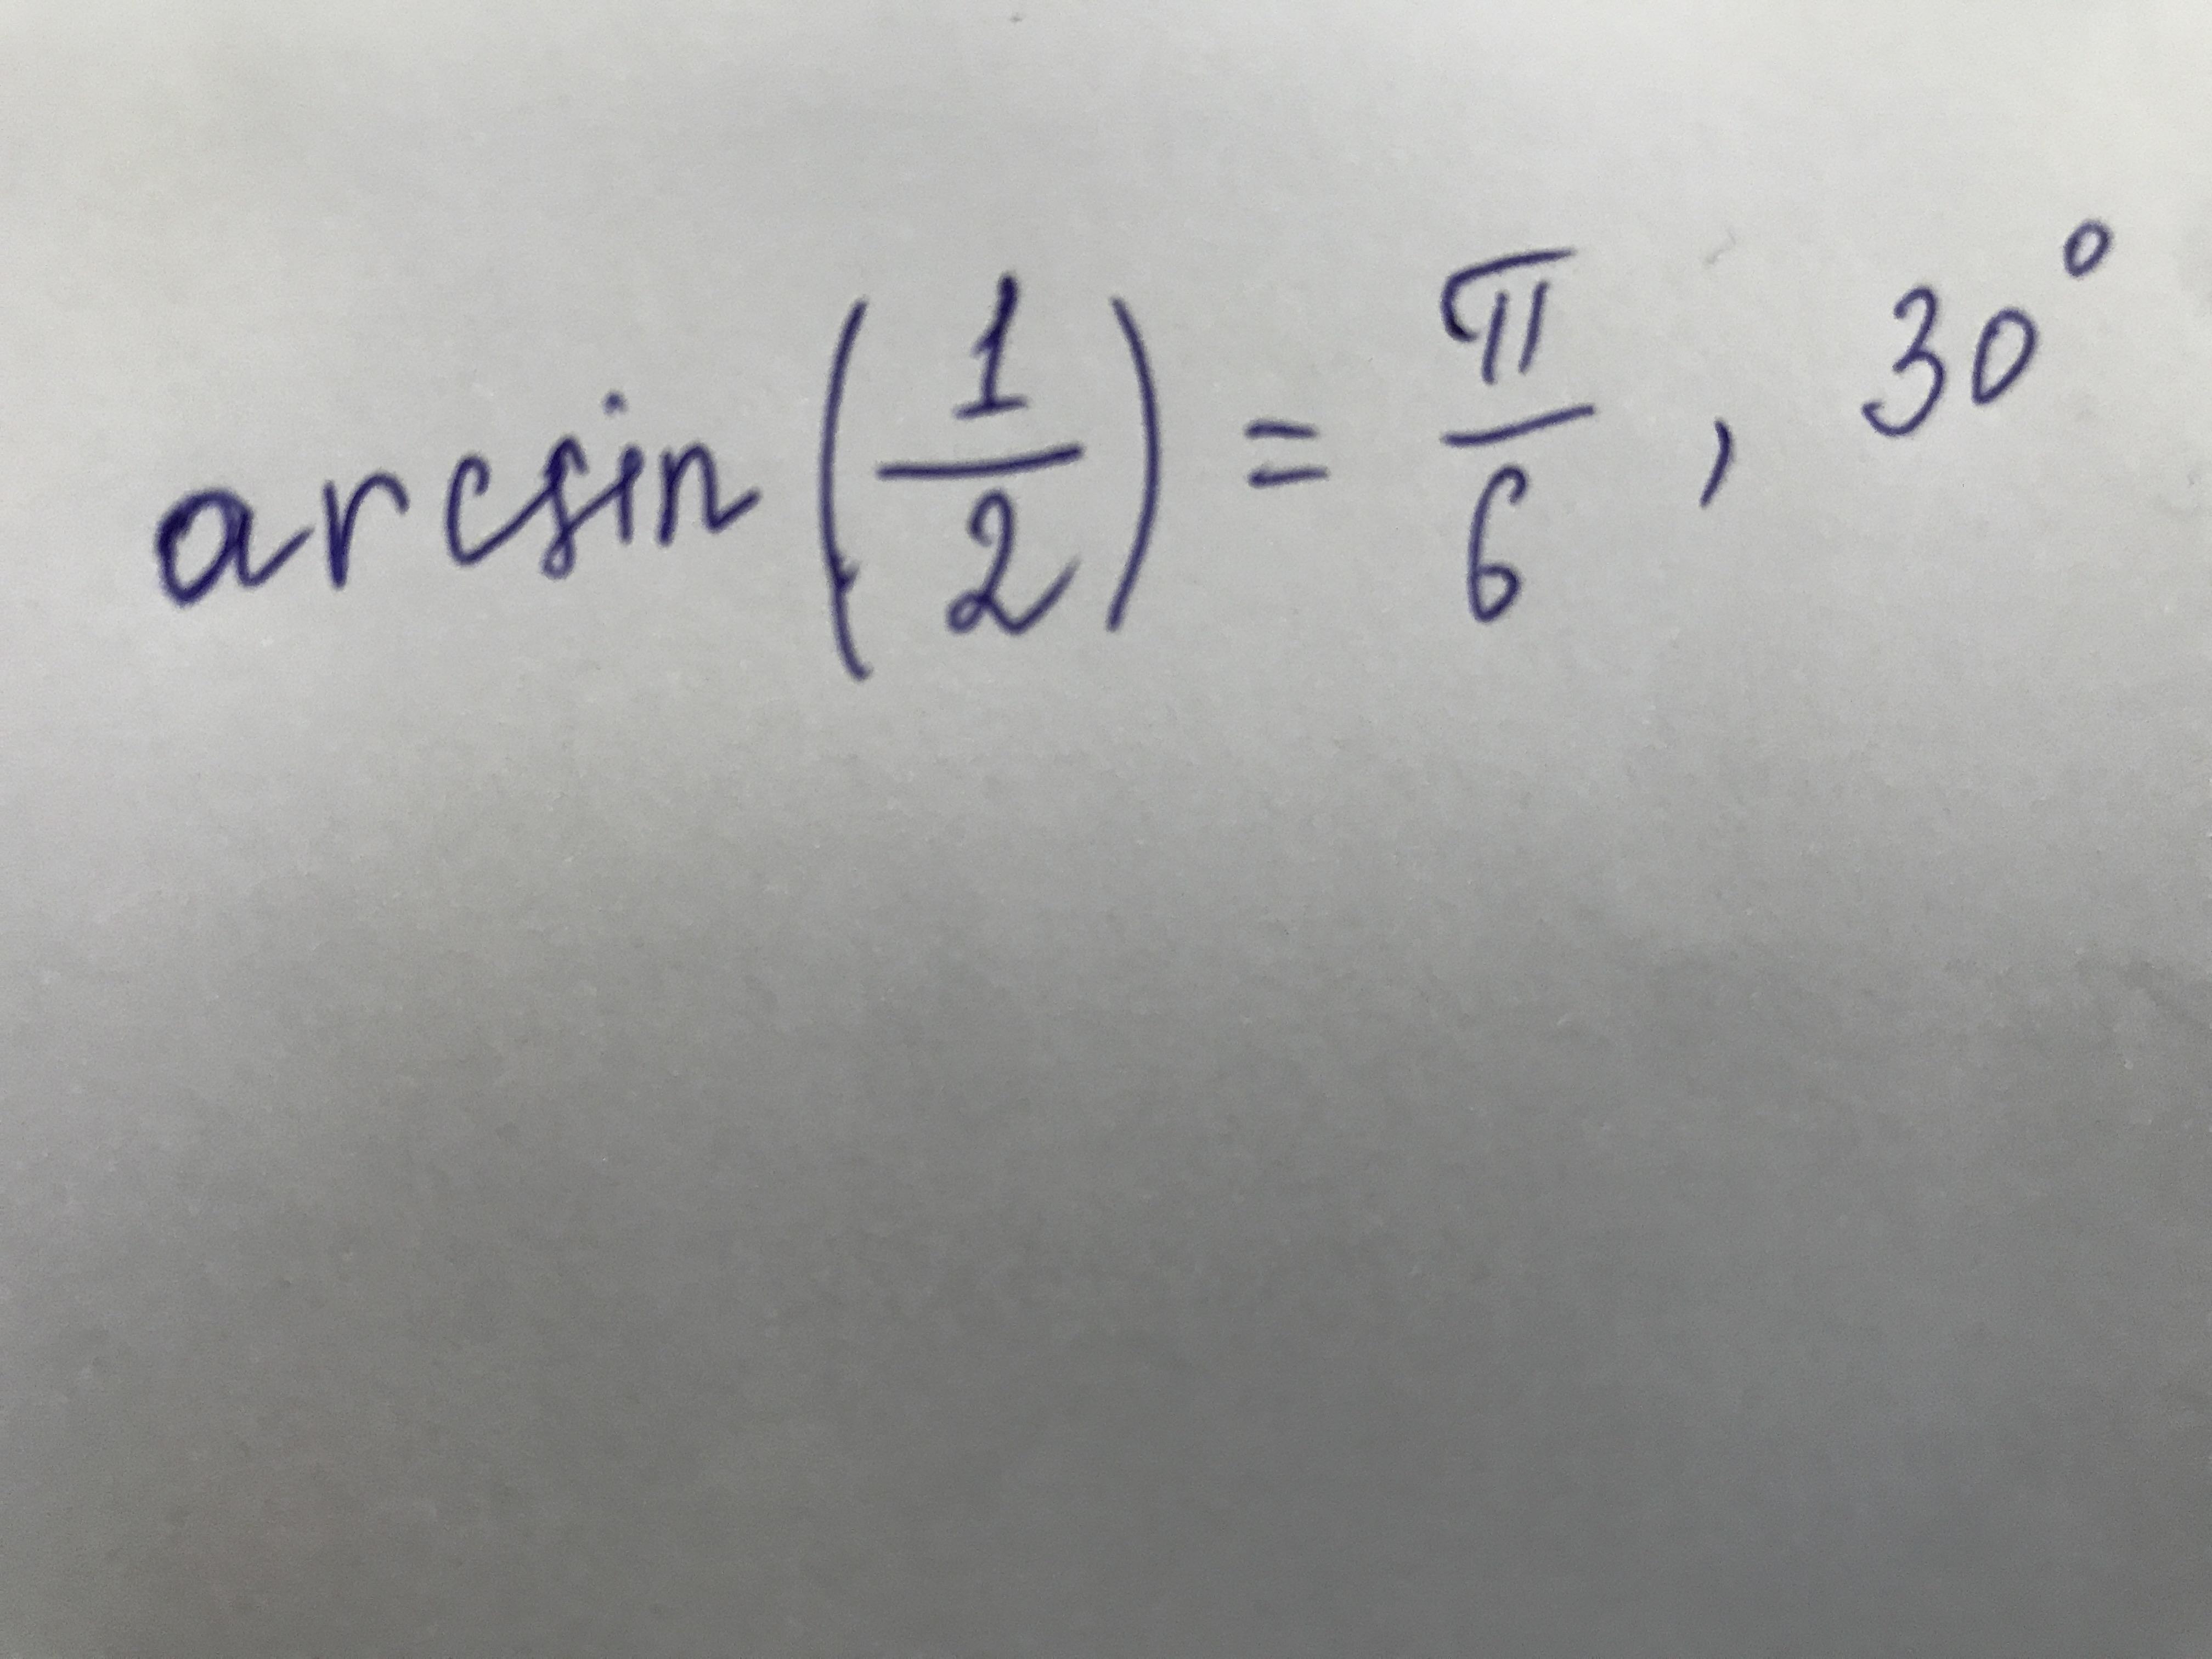 arcsin(1/2) = π/6 , 30°